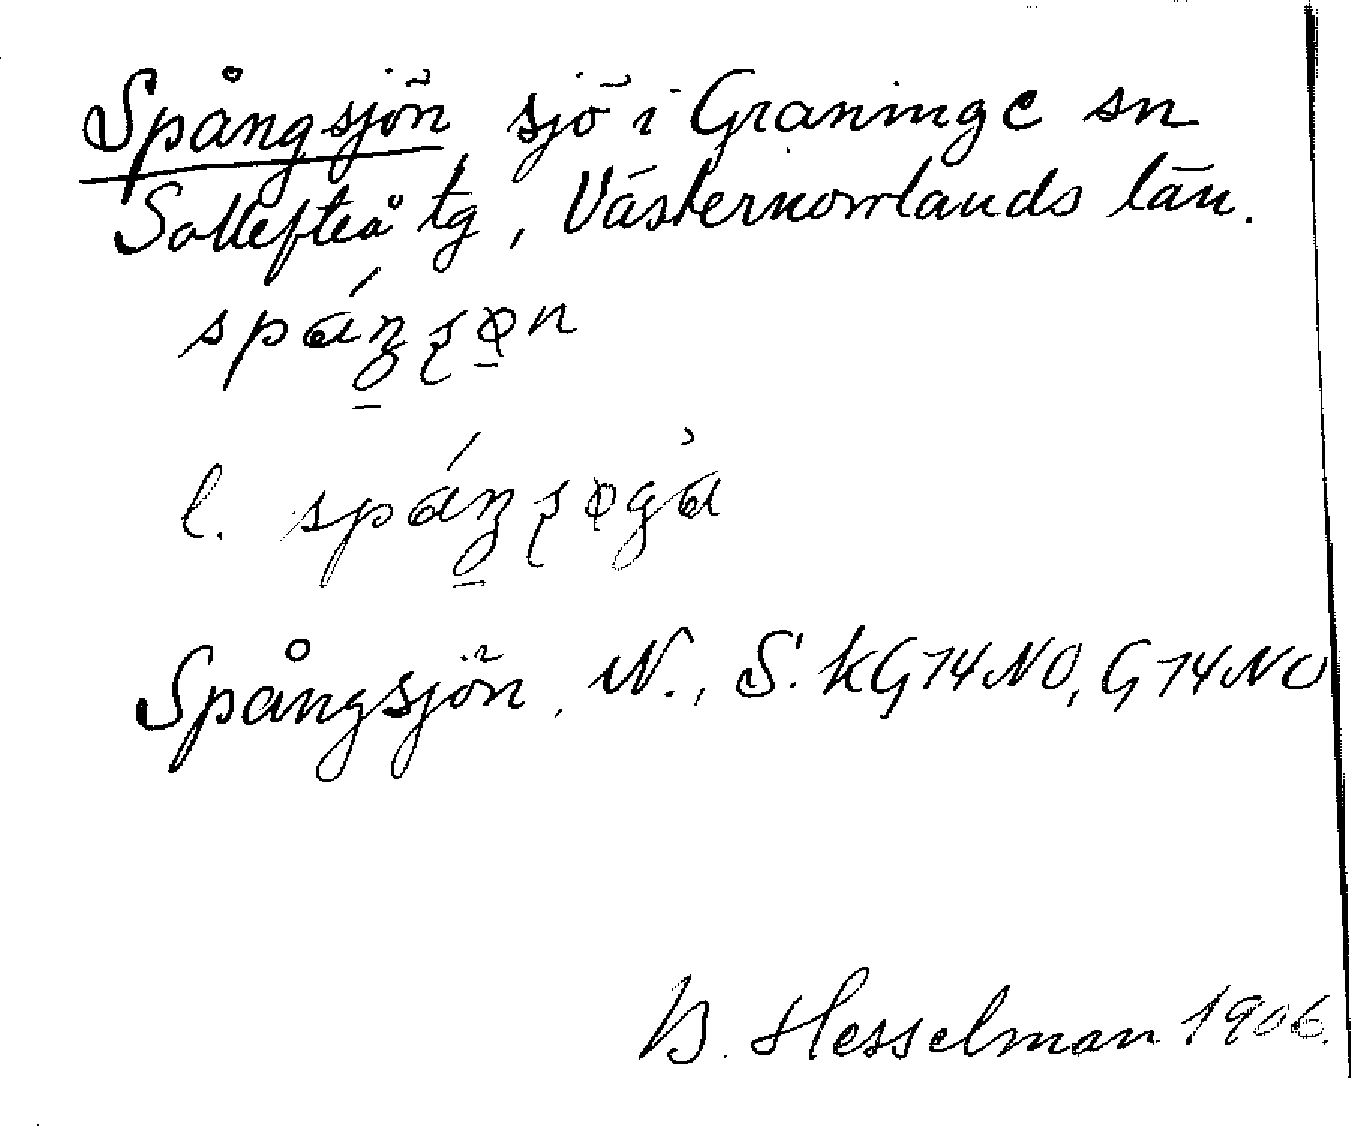 Spångsjön sjö i Graninge sn
Sollefteå tg, Västernorrlands län.
l.
Spångsjön, N., S. kG74NO, G74NO
B. Hesselman 1906.